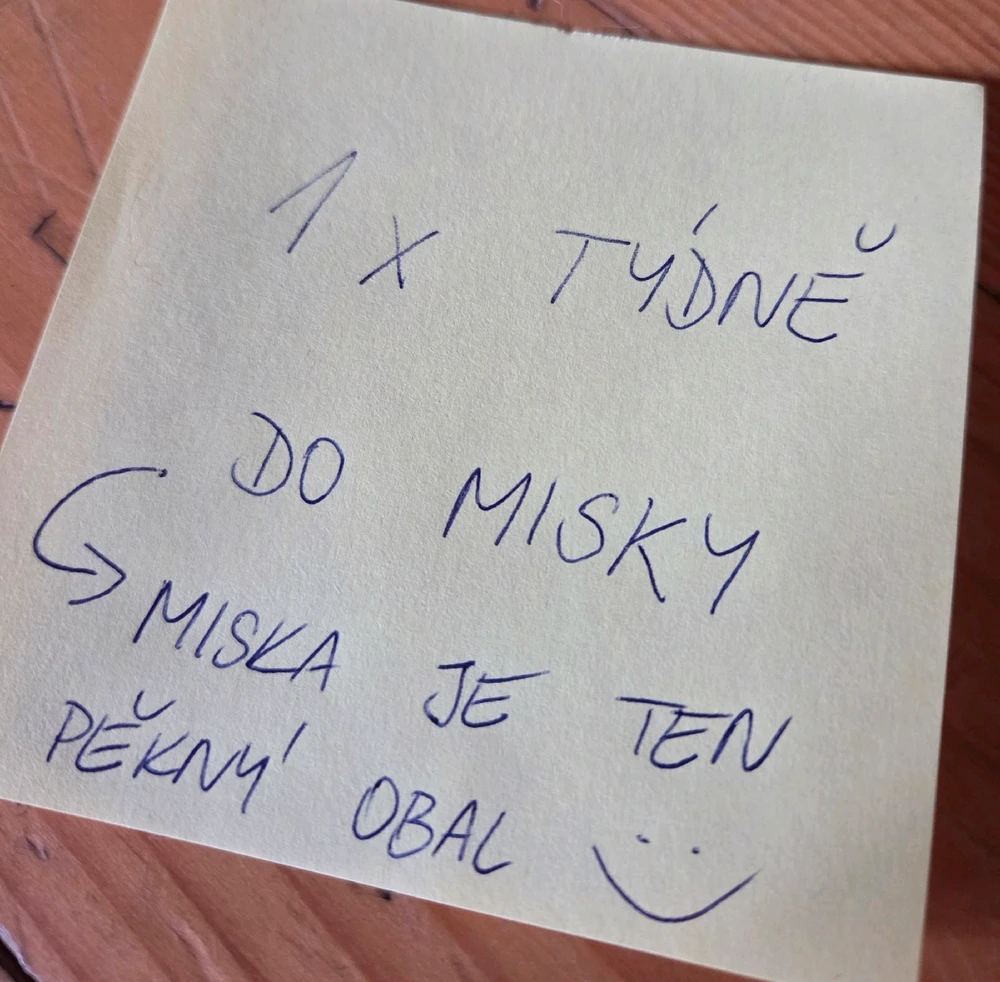 1 x TÝDNĚ
DO MISKY
MISKA JE TEN
PĚKNÝ OBAL